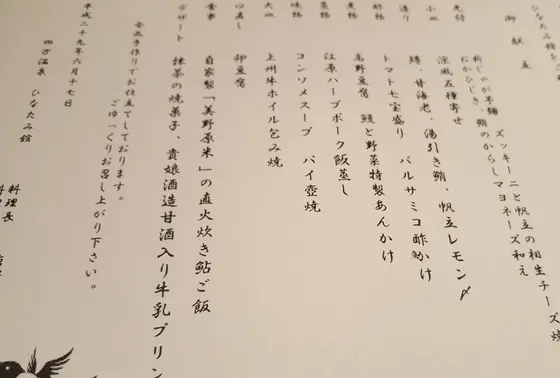 ひなたみ館
御献立
先付 ズッキーニと帆立の相生チーズ焼
おかひじき、鮹のからしマヨネーズ和え
小皿 涼風五種寄せ
造り 鱒、甘海老、湯引き鮹、帆立レモン〆
酢物 トマト七宝盛り バルサミコ酢かけ
煮物 高野豆腐 鰻と野菜特製あんかけ
蒸物 江原ハーブポーク飯蒸し
焼物 コンソメスープ パイ壺焼
大皿 上州牛ホイル包み焼
口直し 卵豆腐
食事 自家製「美野原米」の直火炊き鮎ご飯
デザート 抹茶の焼菓子、貴娘酒造甘酒入り牛乳プリン
全品手作りでお仕立てしております。
ごゆっくりお召し上がり下さい。
平成二十九年六月十七日
四万温泉 ひなたみ館
料理長